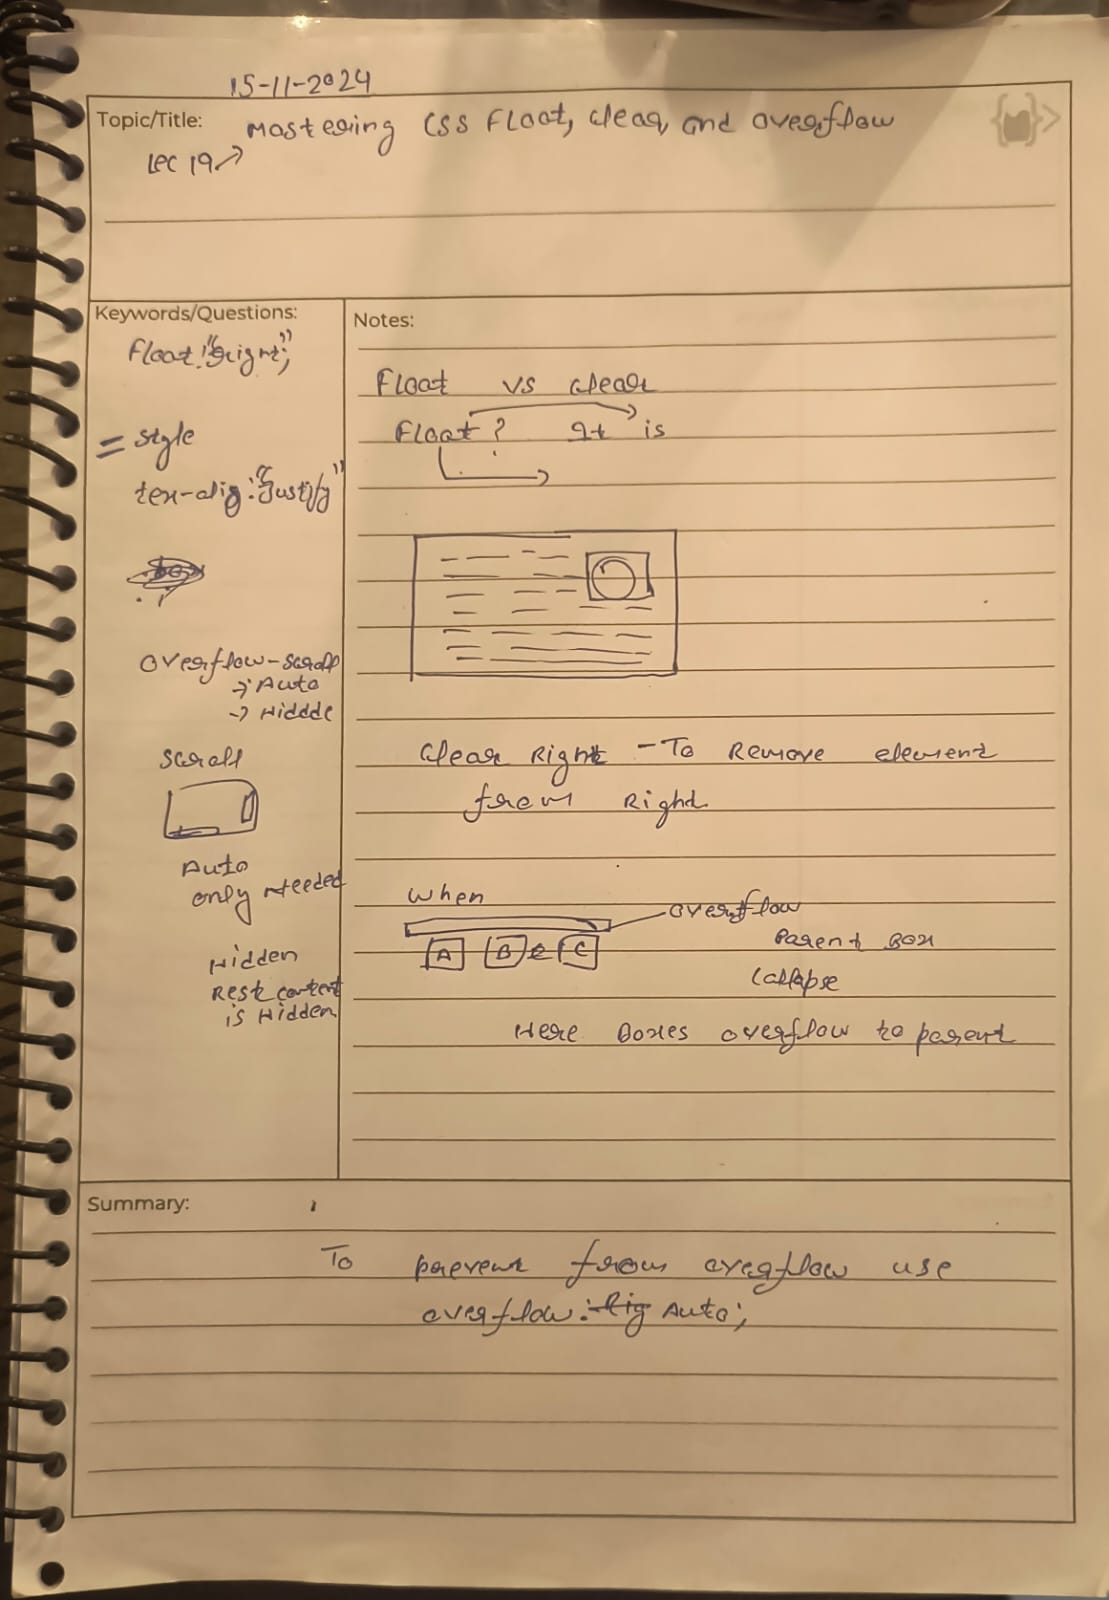 15-11-2024
Topic/Title: Mastering CSS Float, clear, and overflow
Lec 19→
Keywords/Questions:
Float:"right";
= style
tex-alig:"Justify"
overflow-scroll
→ Auto
→ Hiddde
scroll
Auto
only needed
Hidden
Rest content
is Hidden
Notes:
Float vs clear
Float? It is
clear Right - To Remove element
from Right
when
overflow
A B C
Parent Box
Collapse
Here Boxes overflow to parent
Summary:
To prevent from overflow use
overflow: Auto;